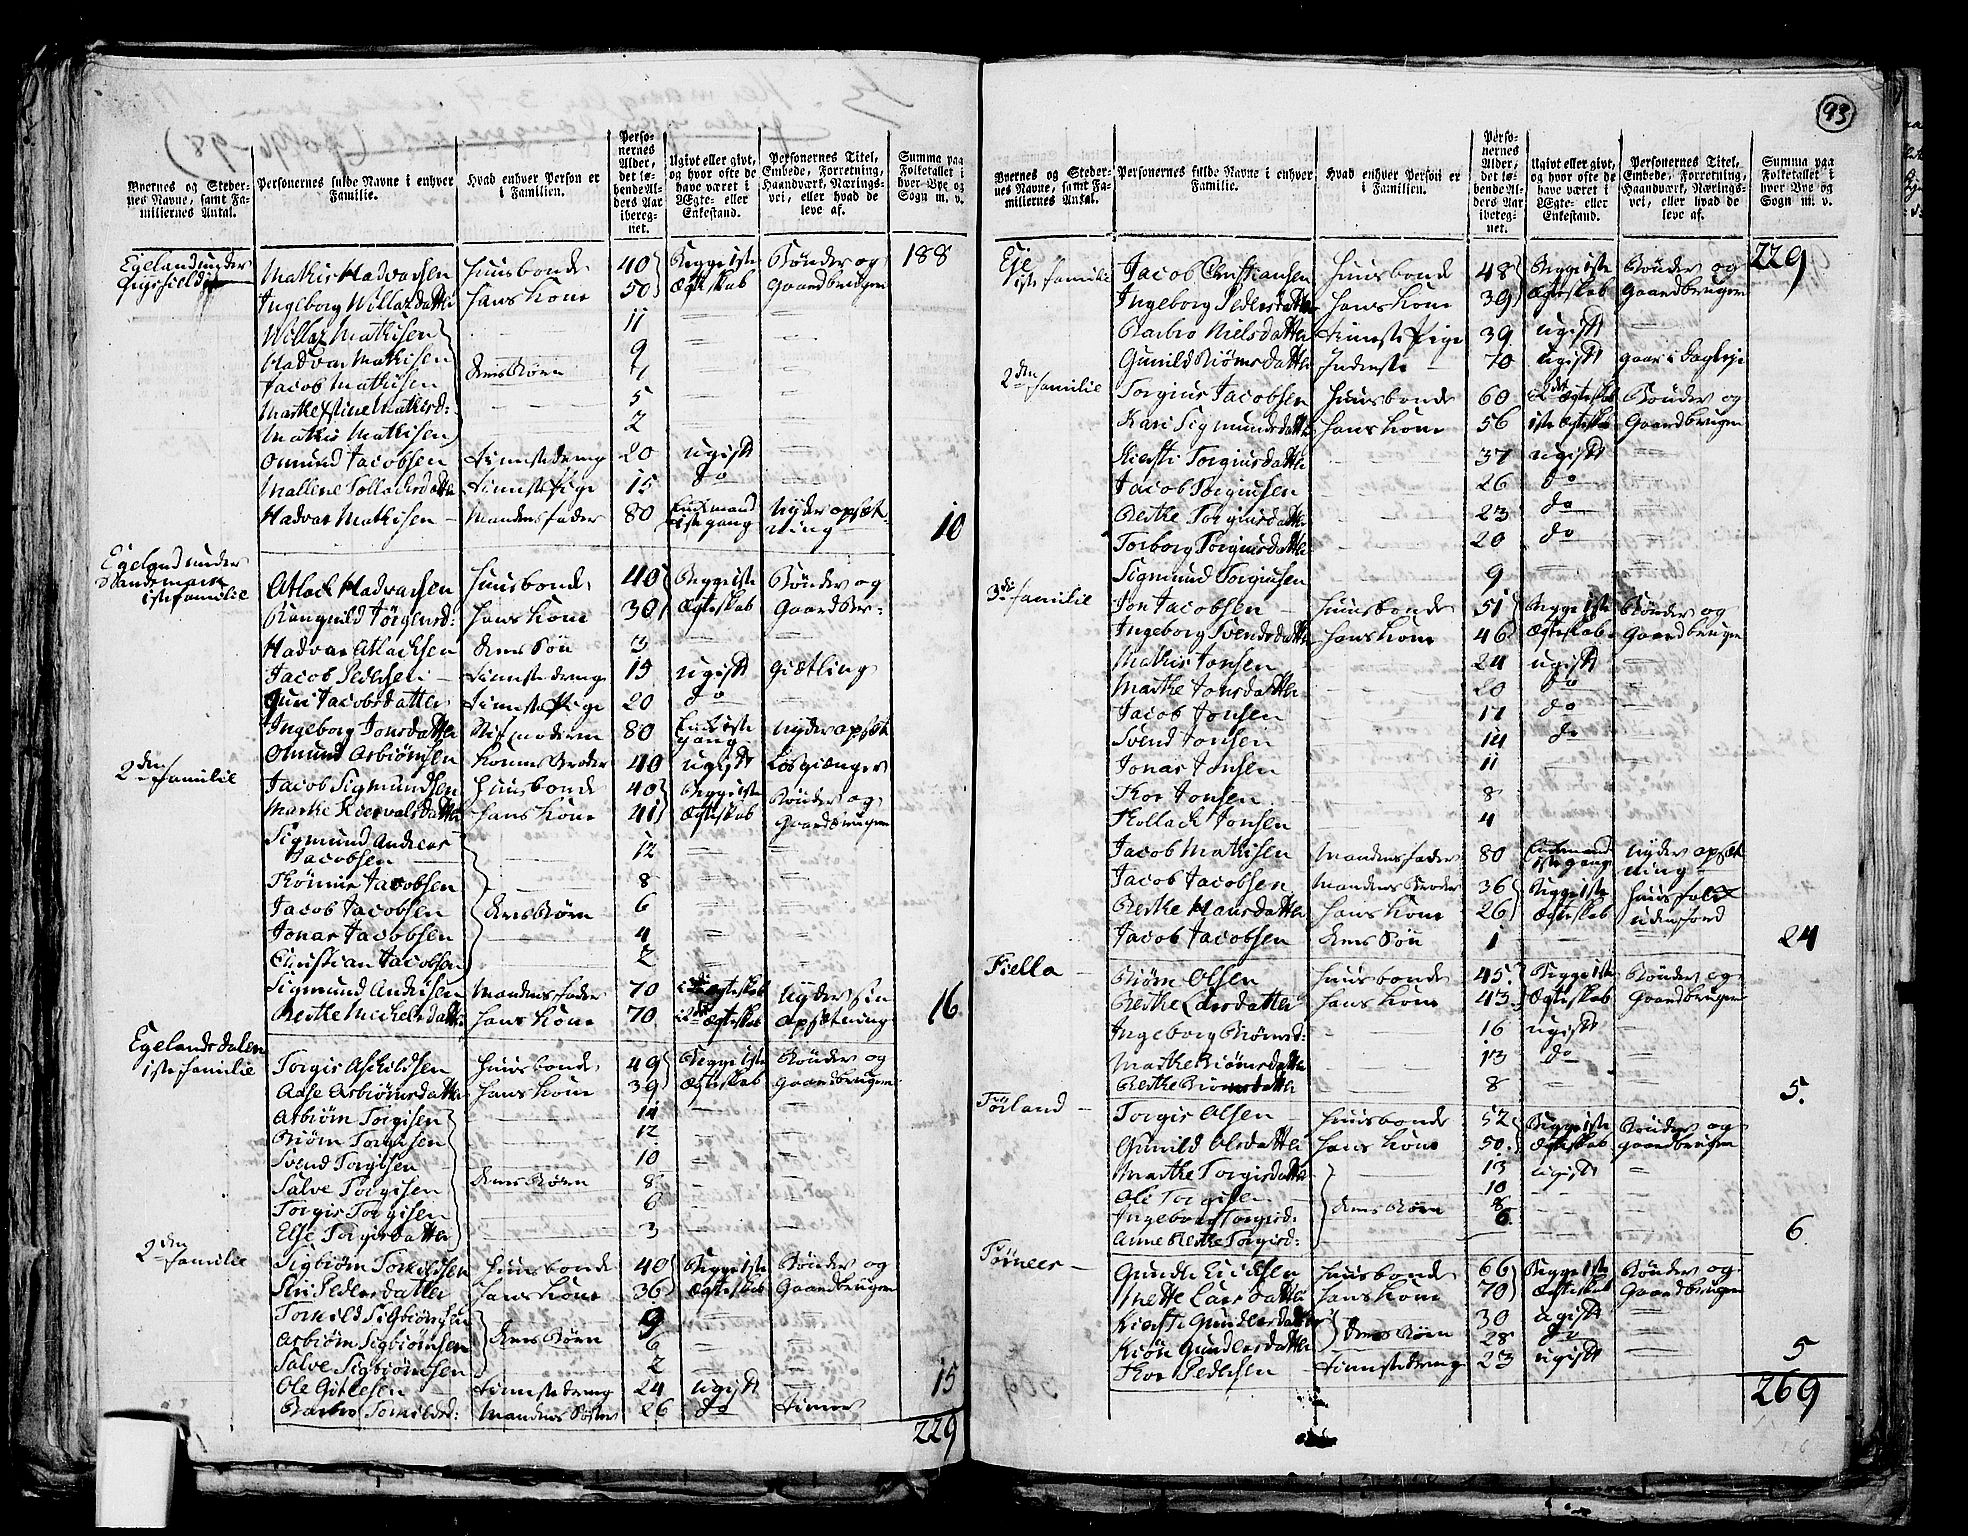 93
Byernes og Stedernes Navne, samt Familiernes Antal.
Personernes fulde Navne i enhver Familie.
Hvad enhver Person er i Familien.
Personernes Alder, det løbende Alders Aar iberegnet.
Ugivt eller givt, og hvor ofte de have været i Ægte- eller Enkestand.
Personernes Titel, Embede, Forretning, Haandværk, Næringsvei, eller hvad de leve af.
Summa paa Folketallet i hver Bye og Sogn m. v.
Egeland under
188
Mathis Hadvarsen Huusbonde 40 Begge 1ste Bønder og
Ingeborg Willasdatter Hans Kone 50 Ægteskab Gaardbrugen
Willas Mathisen 11
Hadvar Mathisen 9
Jacob Mathisen Deres Børn 7
Marthe Stine Mathisd: 5
Mathis Mathisen 2
Omund Jacobsen Tienestedreng 20 ugift
Mallene Tollachsdatter Tienestepige 15 do
Hadvar Mathisen Mandens fader 80 Enkemand 1ste gang Nyder opsætning
10
Egeland under
1ste familie
Atlach Hadvarsen Huusbonde 40 Begge 1ste Bønder og
Rangnild Jørgensd: Hans Kone 30 Ægteskab Gaardbr:
Hadvar Atlachsen Deres Søn 3
Jacob Pedersen Tienestedreng 15 ugift Giætling
Guri Jacobsdatter Tienestepige 20 do
Ingeborg Jonsdatter Stifmoderen 80 Enke 1ste gang Nyder opsæt
Omund Asbiørnsen Konens Broder 40 ugift Løsgiænger
2den familie
Jacob Sigmundsen Huusbonde 40 Begge 1ste Bønder og
Marthe Hans Kone 41 Ægteskab Gaardbrugen
Sigmund Andreas Jacobsen 12
Thønnis Jacobsen 8
Jacob Jacobsen Deres Børn 6
Jonas Jacobsen 4
Christian Jacobsen 2
Sigmund Mandens fader 70 2den Ægteskab Nyder sin
Berthe Michelsdatter Hans Kone 70 2den Ægteskab opsætning
16
Egelandsdalen
1ste familie
Torgis Askildsen Huusbonde 49 Begge 1ste Bønder og
Aase Asbiørnsdatter Hans Kone 39 Ægteskab Gaardbrugen
Asbiørn Torgisen 14
Biørn Torgisen 12
Svend Torgisen 10
Salve Torgisen Deres Børn 8
Torgis Torgisen 6
Else Torgisdatter 3
2den familie
Sigbiørn Torkildsen Huusbonde 40 Begge 1ste Bønder og
Siri Pedersdatter Hans Kone 36 Ægteskab Gaardbrugen
Torkild Sigbiørnsen 9
Asbiørn Sigbiørnsen Deres Børn 6
Salve Sigbiørnsen 2
Ole Gitlesen Tienestedreng 24 ugift
Barbro Torkildsd: Mandens Søster 26 do Tiener
15
229
Byernes og Stedernes Navne, samt Familiernes Antal.
Personernes fulde Navne i enhver Familie.
Hvad enhver Person er i Familien.
Personernes Alder, det løbende Alders Aar iberegnet.
Ugivt eller givt, og hvor ofte de have været i Ægte- eller Enkestand.
Personernes Titel, Embede, Forretning, Haandværk, Næringsvei, eller hvad de leve af.
Summa paa Folketallet i hver Bye og Sogn m. v.
Eje
1ste familie
229
Jacob Christiansen Huusbonde 48 Begge 1ste Bønder og
Ingeborg Pedersdatter Hans Kone 39 Ægteskab Gaardbrugen
Barbro Nielsdatter Tieneste Pige 39 ugift
Gunild Biørnsdatter Inderste 70 ugift gaar i Dagleje
2den familie
Torgius Jacobsen Huusbonde 60 2det Ægteskab Bønder og
Kari Sigmundsdatter Hans Kone 56 1ste Ægteskab Gaardbrugen
Kiersti Torgiusdatter 37 ugift
Jacob Torgiusen 26 do
Berthe Torgiusdatter 23 do
Torborg Torgiusdatter 20 do
Sigmund Torgiusen 9
3die familie
Jon Jacobsen Huusbonde 51 Begge 1ste Bønder og
Ingeborg Svendsdatter Hans Kone 46 Ægteskab Gaardbrugen
Mathis Jonsen 24 ugift
Marthe Jonsdatter 20 do
Jacob Jonsen 17 do
Svend Jonsen 14 do
Jonas Jonsen 11
Thor Jonsen 8
Thollach Jonsen 4
Jacob Mathisen Mandens fader 80 Enkemand 1ste gang Nyder opsætning
Jacob Jacobsen Mandens Broder 36 Begge 1ste Huusfolk
Berthe Hansdatter Hans Kone 26 Ægteskab uden jord
Jacob Jacobsen Deres Søn 1
24
Fiella
Biørn Olsen Huusbonde 45 Begge 1ste Bønder og
Berthe Larsdatter Hans Kone 43 Ægteskab Gaardbrugen
Ingeborg Biørnsd: 16 ugift
Marthe Biørnsdatter 13 do
Berthe Biørnsdatter 8
5.
Tørland
Torgis Olsen Huusbonde 52 Begge 1ste Bønder og
Gunild Olsdatter Hans Kone 50 Ægteskab Gaardbrugen
Marthe Torgisdatter 13 ugift
Ole Torgisen 10
Ingeborg Torgisd: Deres Børn 8
Anne Berthe Torgisd: 6
6.
Tørnees
Gunde Huusbonde 66 Begge 1ste Bønder og
Mette Larsdatter Hans Kone 70 Ægteskab Gaardbrugen
Kiersti Gundersdatter 30 ugift
Gundersdatter Deres Børn 28 do
Thor Pedersen Tienestedreng 23 ugift
5
269